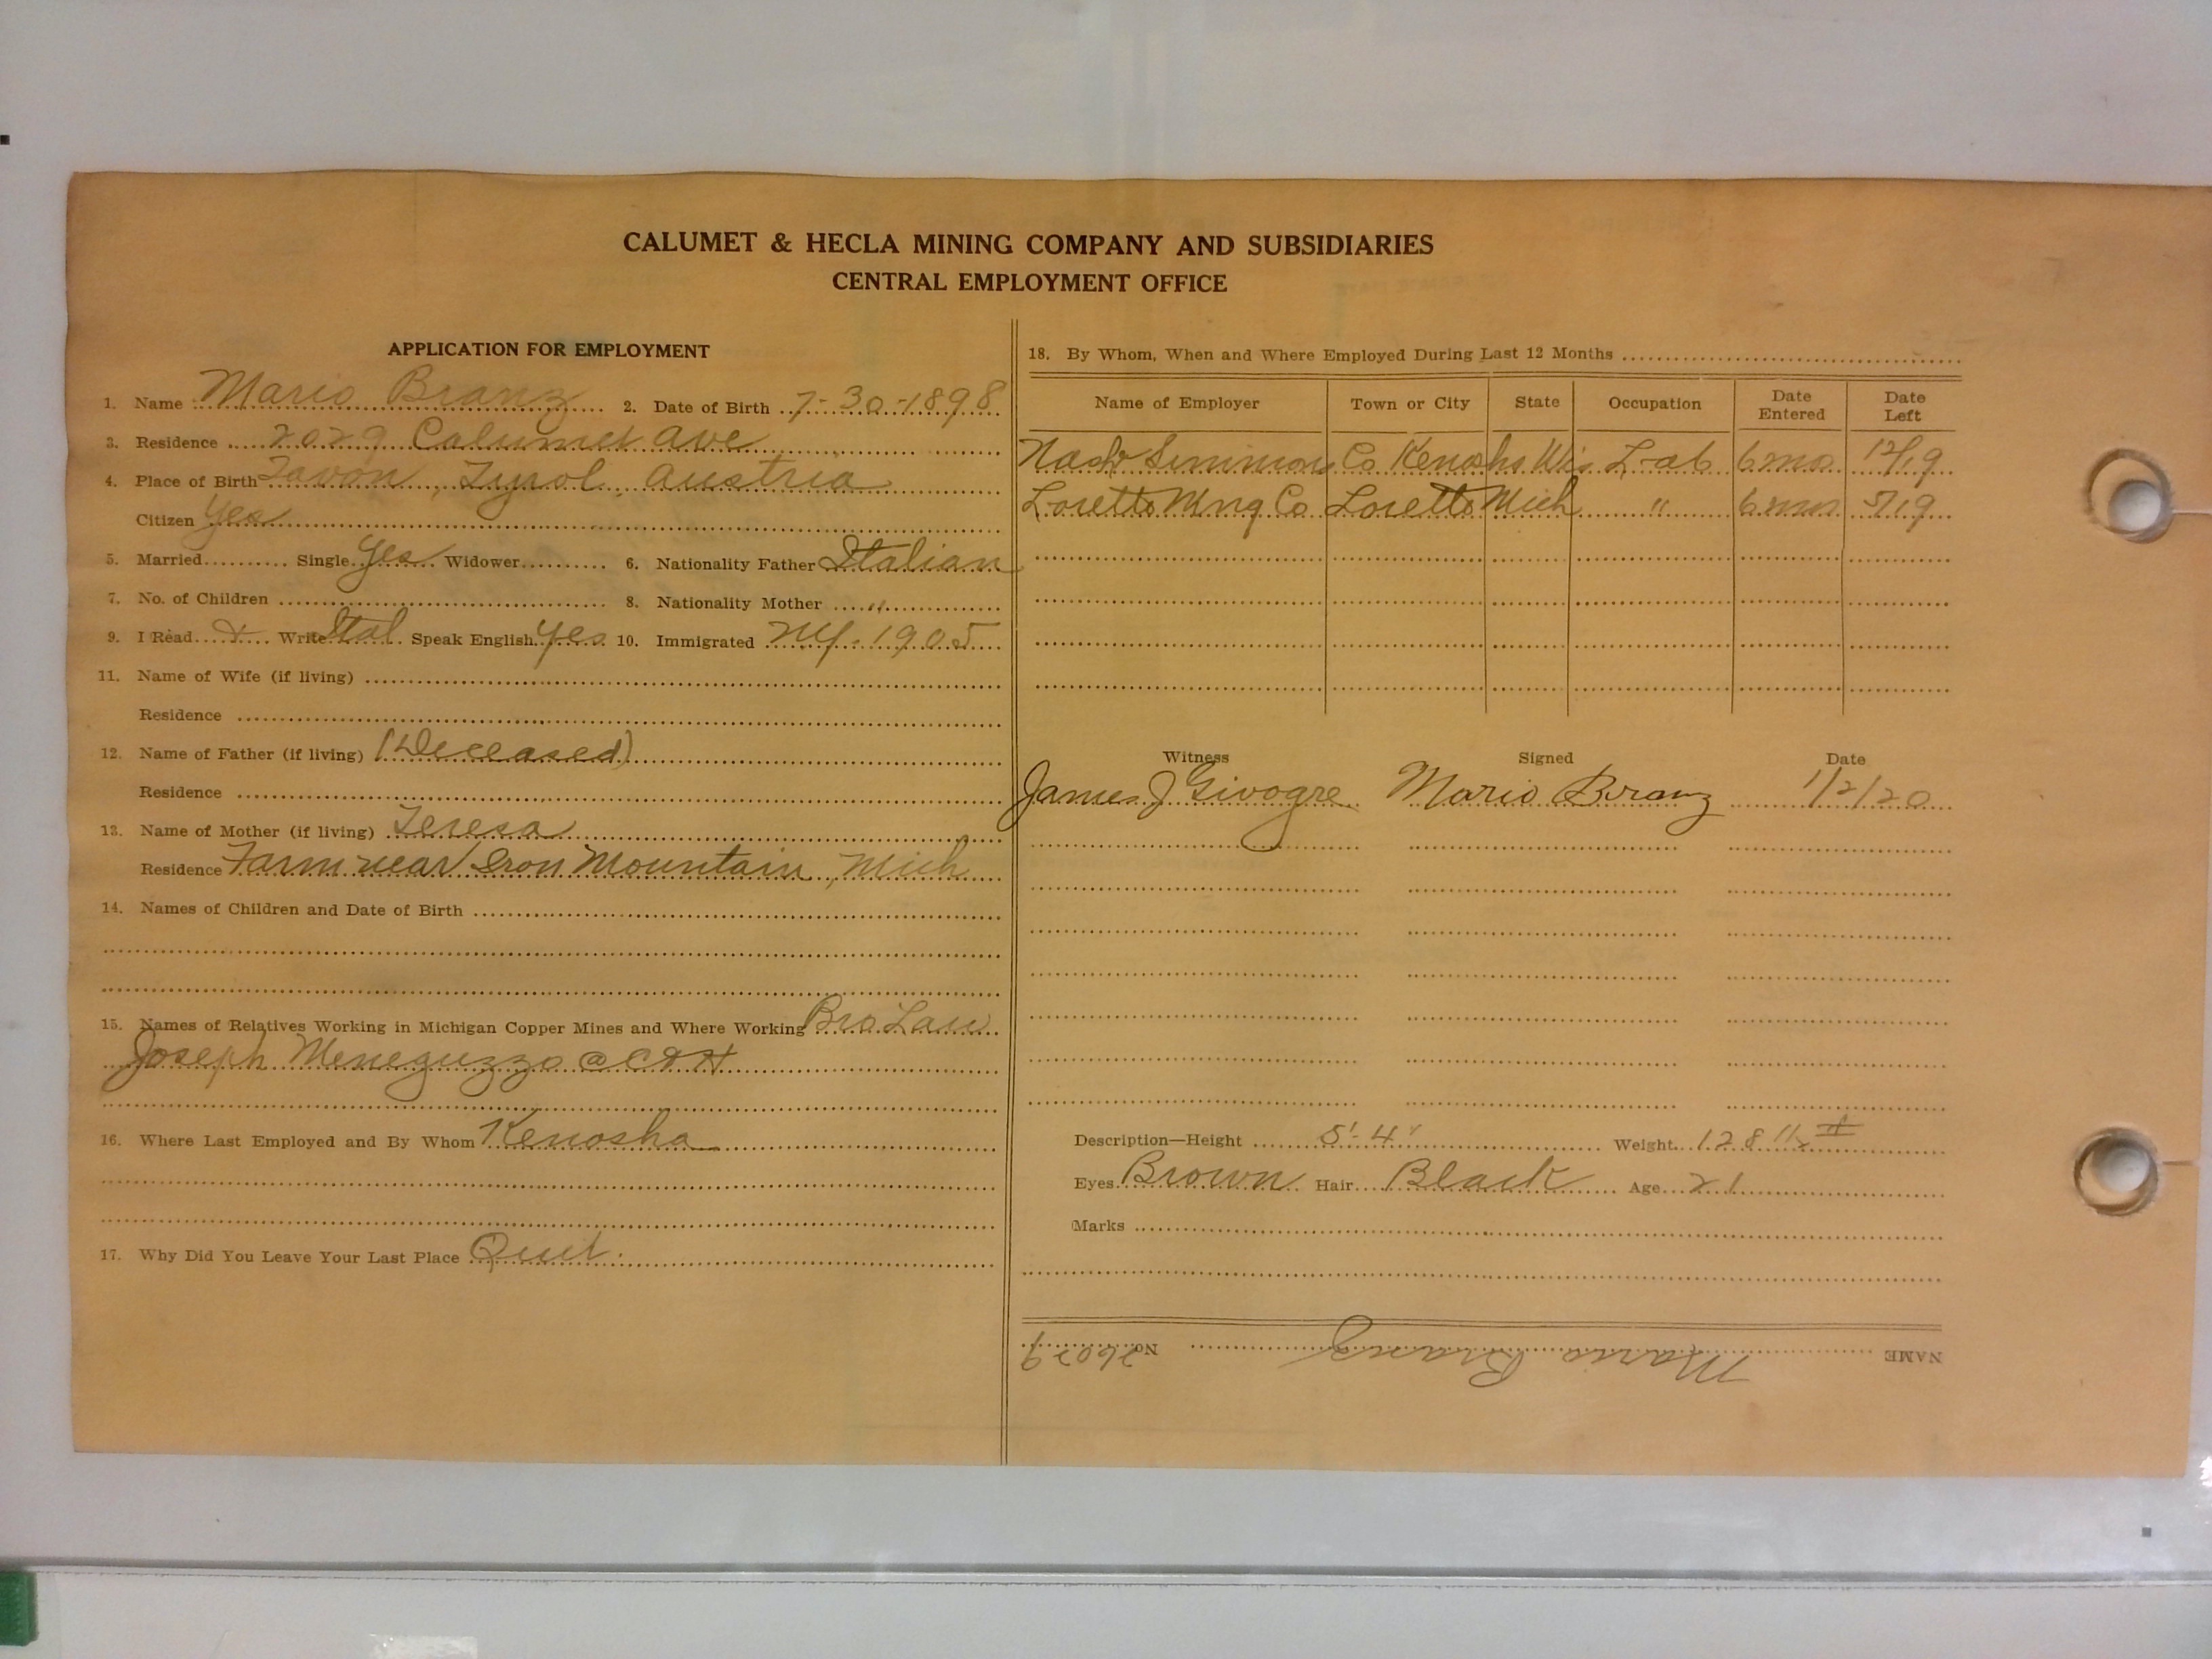 CALUMET & HECLA MINING COMPANY AND SUBSIDIARIES
CENTRAL EMPLOYMENT OFFICE
APPLICATION FOR EMPLOYMENT
1. Name Mario Branz 2. Date of Birth 7-30-1898
3. Residence 2029 Calumet Ave
4. Place of Birth Tavon, Tyrol, Austria
Citizen Yes
5. Married Single Yes Widower 6. Nationality Father Italian
7. No. of Children 8. Nationality Mother "
9. I Read & Write Ital Speak English Yes 10. Immigrated NY-1905
11. Name of Wife (if living)
Residence
12. Name of Father (if living) (Deceased)
Residence
13. Name of Mother (if living) Teresa
Residence Farm near Iron Mountain, Mich
14. Names of Children and Date of Birth
15. Names of Relatives Working in Michigan Copper Mines and Where Working Bro Law
Joseph Meneguzzo @ C & H
16. Where Last Employed and By Whom Kenosha
17. Why Did You Leave Your Last Place Quit.
18. By Whom, When and Where Employed During Last 12 Months
Name of Employer Town or City State Occupation Date Entered Date Left
Nash Simmons Co Kenosha Wis Lab 6 mos 12/19
Loretto Mng Co Loretto Mich " 6 mos 5/19
Witness Signed Date
James J Givogre Mario Branz 1/2/20
Description—Height 5'-4" Weight 128
Eyes Brown Hair Black Age 21
Marks
NAME Mario Branz No. 26029